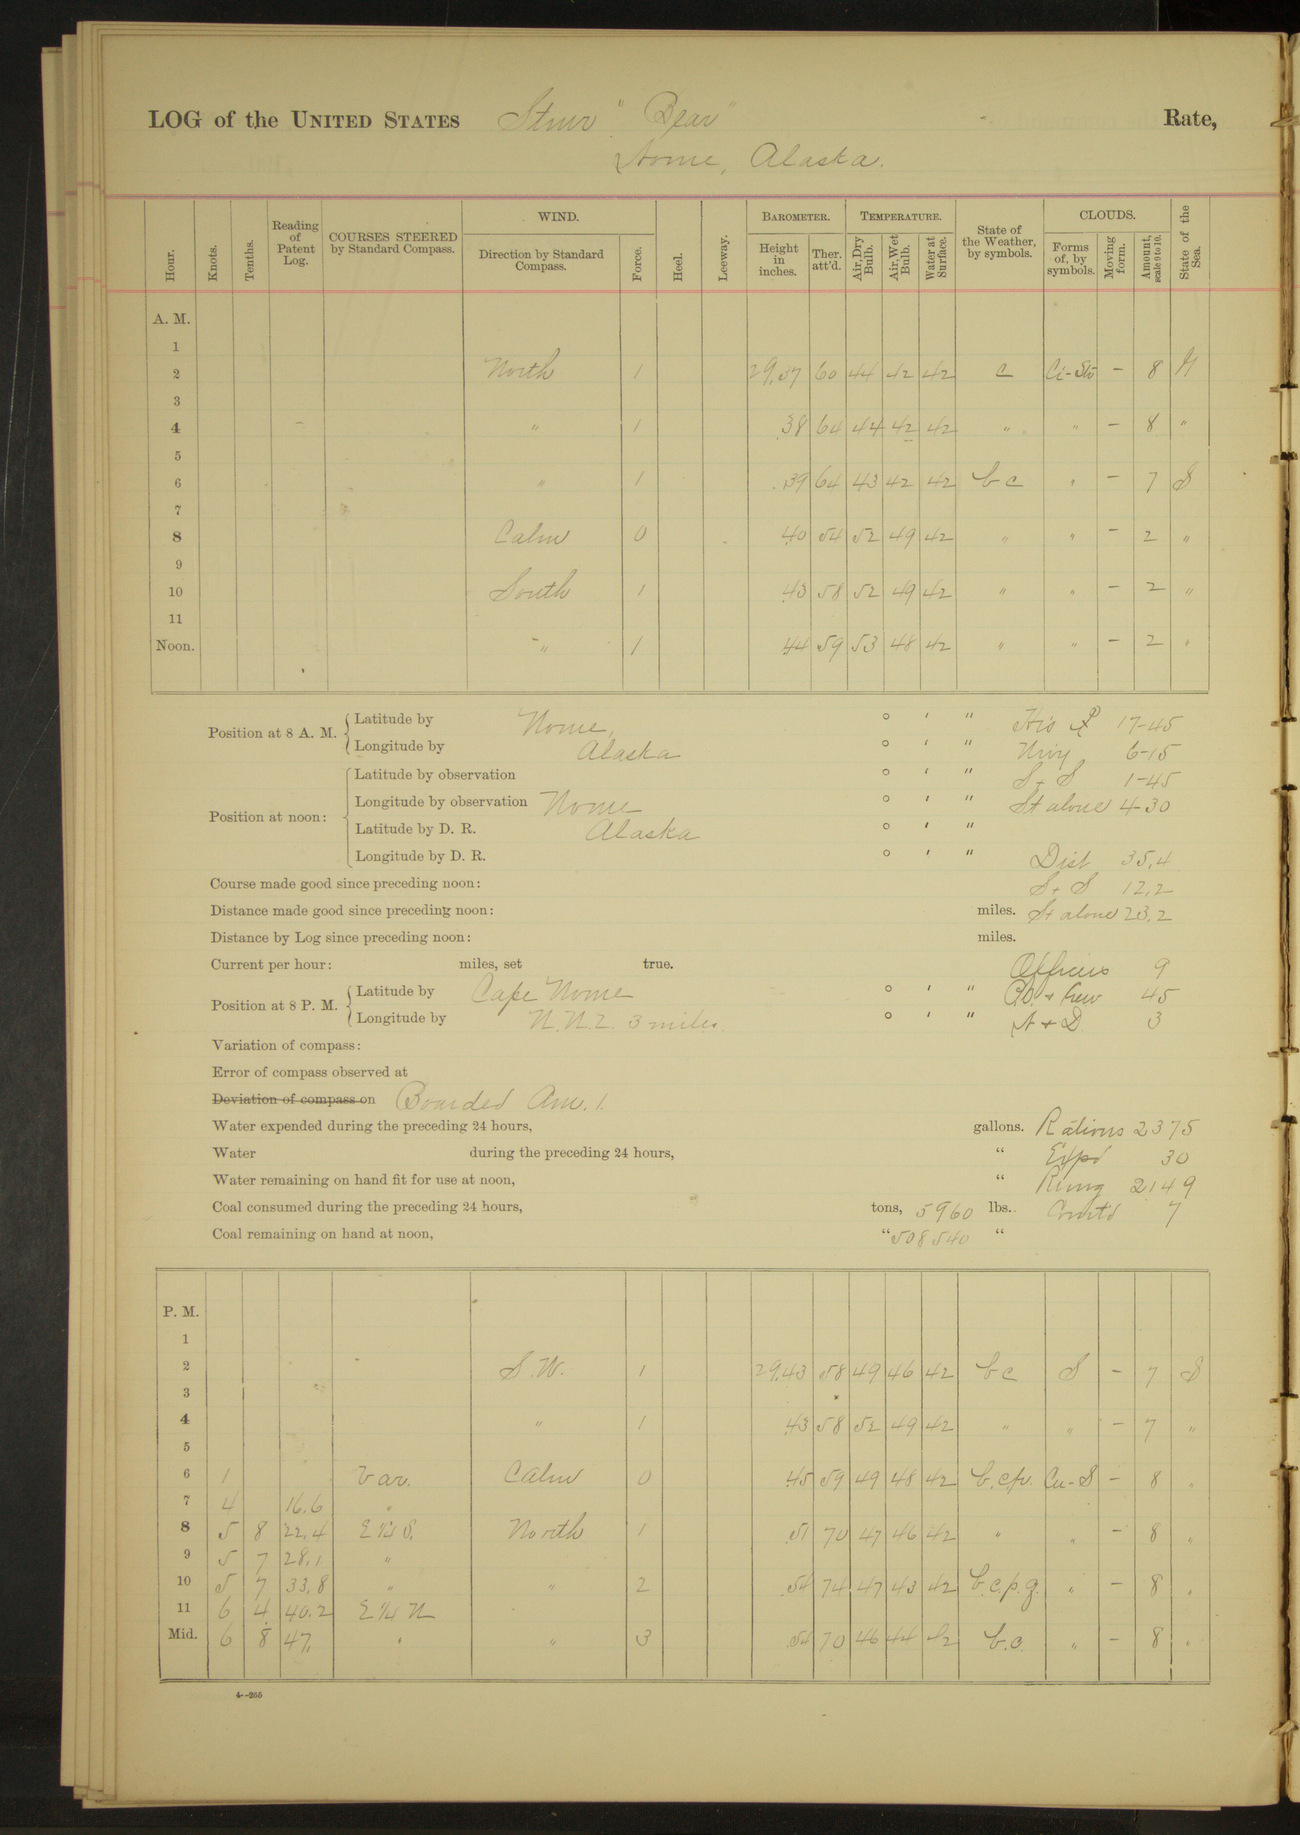 LOG of the UNITED STATES Stmr "Bear" Rate,
Nome, Alaska.
Hour. Knots. Tenths. Reading of Patent Log. COURSES STEERED by Standard Compass. WIND. Direction by Standard Compass. Force. Heel. Leeway. BAROMETER. Height in inches. Ther. att'd. TEMPERATURE. Air, Dry Bulb. Air, Wet Bulb. Water at Surface. State of the Weather, by symbols. CLOUDS. Forms of, by symbols. Moving form. Amount, scale 0 to 10. State of the Sea.
A. M.
1
2 North 1 29.37 60 44 42 42 c Ci-St - 8
3
4 " 1 .38 64 44 42 42 " " - 8 "
5
6 " 1 .39 64 43 42 42 b c " - 7 S
7
8 Calm 0 .40 54 52 49 42 " " - 2 "
9
10 South 1 .43 58 52 49 42 " " - 2 "
11
Noon. " 1 .44 59 53 48 42 " " - 2 "
Position at 8 A. M. Latitude by Nome, ° ' " 17-45
Longitude by Alaska ° ' " 6-15
Position at noon: Latitude by observation ° ' " S + S 1-45
Longitude by observation Nome ° ' " St alone 4-30
Latitude by D. R. Alaska ° ' "
Longitude by D. R. ° ' " Dist 35.4
Course made good since preceding noon: S + S 12.2
Distance made good since preceding noon: miles. St alone 23.2
Distance by Log since preceding noon: miles.
Current per hour: miles, set true. Officers 9
Position at 8 P. M. Latitude by Cape Nome ° ' " P.O. + Crew 45
Longitude by N.N.E. 3 miles. ° ' " N + D 3
Variation of compass:
Error of compass observed at
Deviation of compass on Boarded Am. 1.
Water expended during the preceding 24 hours, gallons. Rations 2375
Water during the preceding 24 hours, " Expd 30
Water remaining on hand fit for use at noon, " Remg 2149
Coal consumed during the preceding 24 hours, tons, 5960 lbs. Comtd 7
Coal remaining on hand at noon, " 508540 "
P. M.
1
2 S.W. 1 29.43 58 49 46 42 b c S - 7 S
3
4 " 1 .43 58 52 49 42 " " - 7 "
5
6 1 Var. Calm 0 .45 59 49 48 42 b.c.p. Cu-S - 8 "
7 4 16.6 "
8 5 8 22.4 E ¼ S. North 1 .51 70 47 46 42 " " - 8 "
9 5 7 28.1 "
10 5 7 33.8 " " 2 .54 74 47 43 42 b.c.p.q. " - 8 "
11 6 4 40.2 E ¼ N
Mid. 6 8 47. " " 3 .54 70 46 44 42 b.c. " - 8 "
4--265